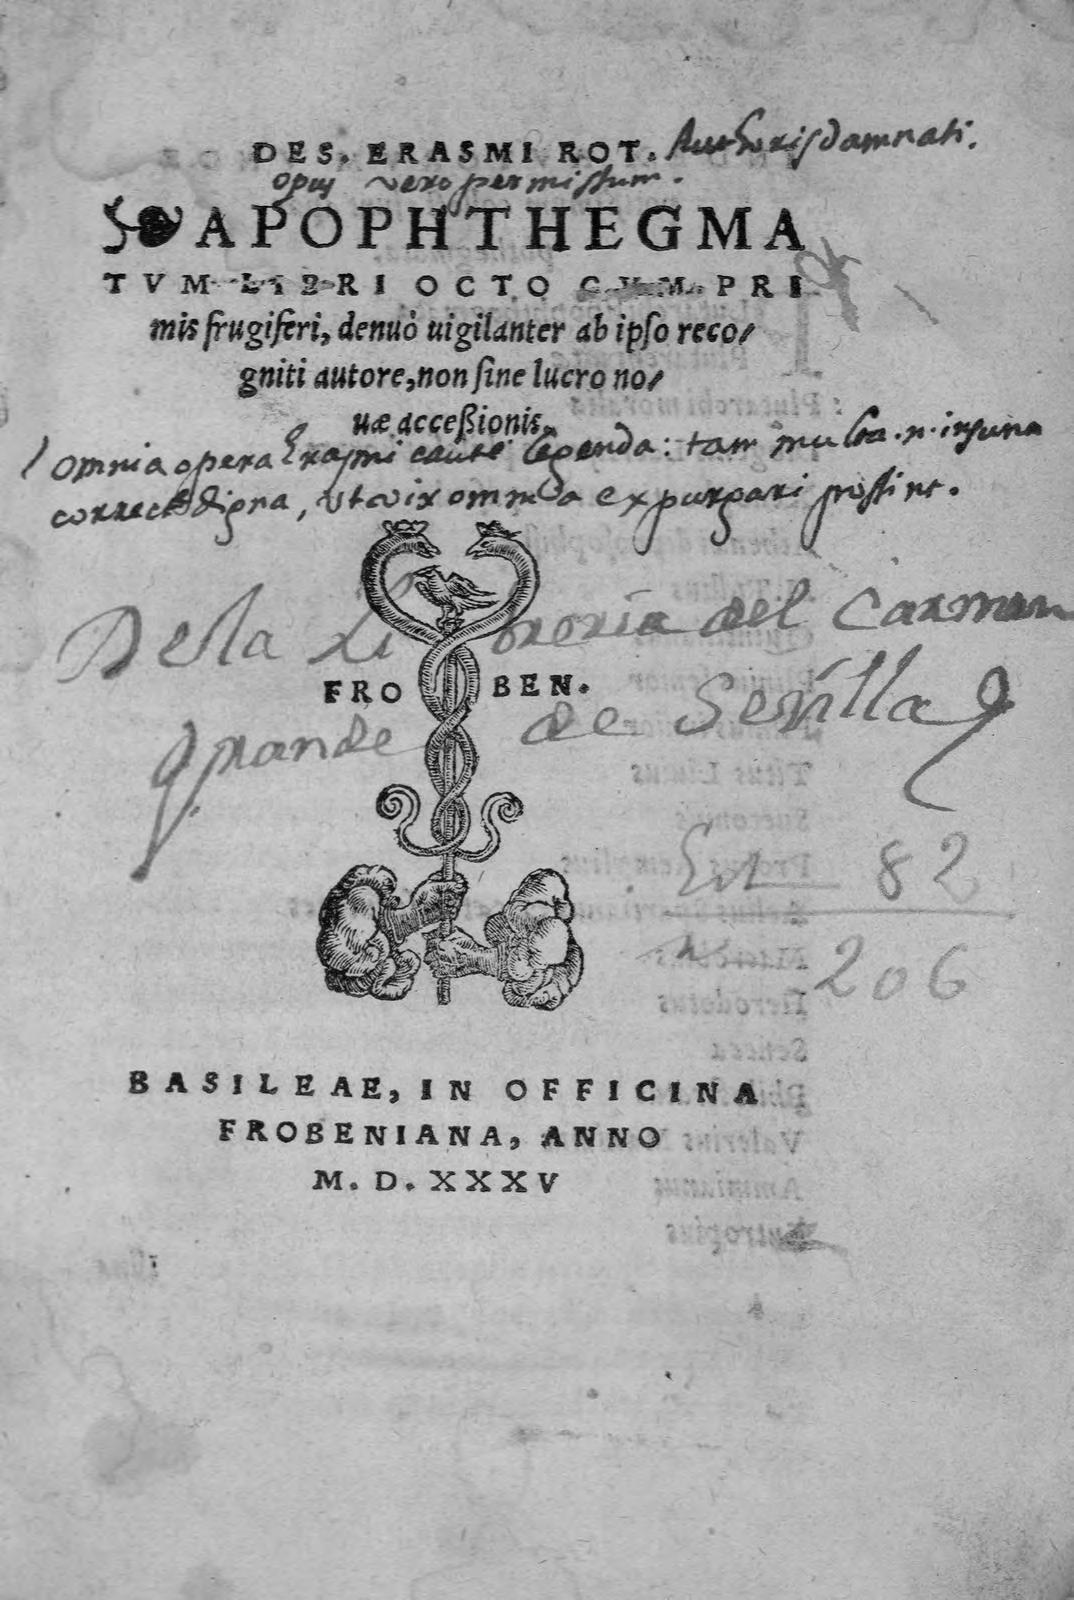 DES. ERASMI ROT. Authoris damnati.
opus vero permissum.
APOPHTHEGMA
TVM LIBRI OCTO CUM PRI
mis frugiferi, denuò uigilanter ab ipso reco/
gniti autore, non sine lucro no/
uæ acceßionis.
omnia opera Erasmi caute legenda: tam multa .n. insunt
correct. digna, ut vix omnia expurgari possint.
De la Libreria del Carmen
FRO BEN.
grande de Sevilla
Est 82
206
BASILEAE, IN OFFICINA
FROBENIANA, ANNO
M. D. XXXV